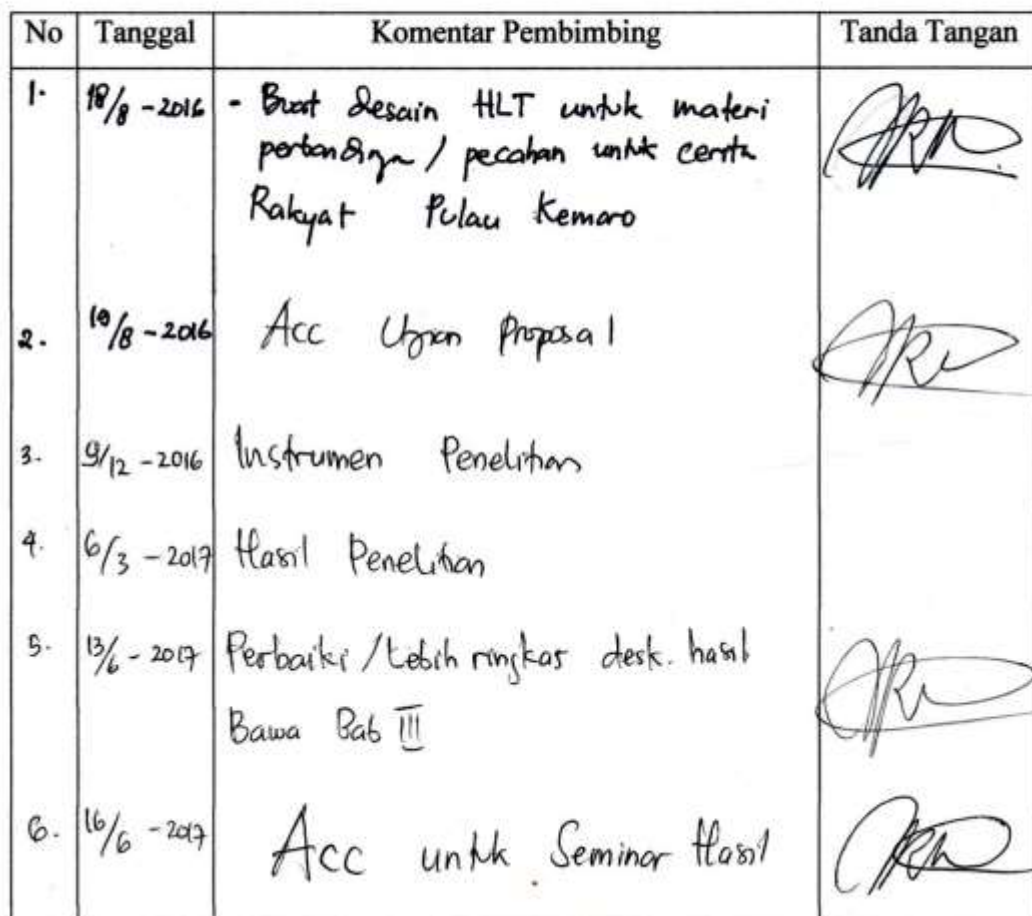 No Tanggal Komentar Pembimbing Tanda Tangan
1. 18/8 - 2016 - Buat desain HLT untuk materi
perbandingan / pecahan untuk cerita
Rakyat Pulau Kemaro
2. 19/8 - 2016 Acc Ujian Proposal
3. 9/12 - 2016 Instrumen Penelitian
4. 6/3 - 2017 Hasil Penelitian
5. 13/6 - 2017 Perbaiki / Lebih ringkas desk. hasil
Bawa Bab III
6. 16/6 - 2017 Acc untuk Seminar Hasil